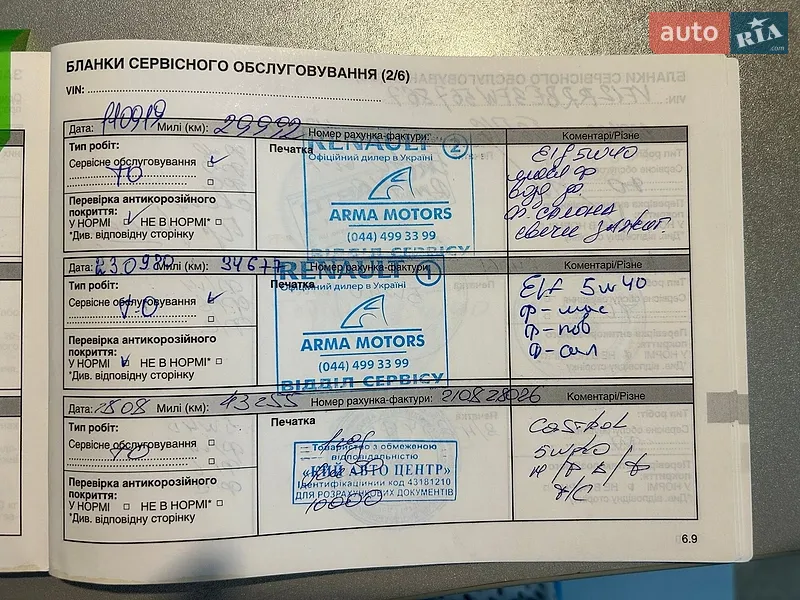 auto RIA.com
БЛАНКИ СЕРВІСНОГО ОБСЛУГОВУВАННЯ (2/6)
VIN:
Дата: 110919 Милі (км): 29992 Номер рахунка-фактури:
Тип робіт:
Сервісне обслуговування
ТО
Перевірка антикорозійного покриття:
У НОРМІ НЕ В НОРМІ*
*Див. відповідну сторінку
Печатка
RENAULT 2
Офіційний дилер в Україні
ARMA MOTORS
(044) 499 33 99
ВІДДІЛ СЕРВІСУ
Коментарі/Різне
Elf 5w40
ф. салона
свечи зажиг.
Дата: 230920 Милі (км): 34677 Номер рахунка-фактури:
Тип робіт:
Сервісне обслуговування
ТО
Перевірка антикорозійного покриття:
У НОРМІ НЕ В НОРМІ*
*Див. відповідну сторінку
Печатка
RENAULT 1
Офіційний дилер в Україні
ARMA MOTORS
(044) 499 33 99
ВІДДІЛ СЕРВІСУ
Коментарі/Різне
Elf 5w40
ф-мас
ф-пов
ф-сал
Дата: 2808 Милі (км): 43255 Номер рахунка-фактури: 210828026
Тип робіт:
Сервісне обслуговування
ТО
Перевірка антикорозійного покриття:
У НОРМІ НЕ В НОРМІ*
*Див. відповідну сторінку
Печатка
Товариство з обмеженою
відповідальністю
«КИЙ АВТО ЦЕНТР»
Ідентифікаційний код 43181210
ДЛЯ РОЗРАХУНКОВИХ ДОКУМЕНТІВ
10000
Коментарі/Різне
Castrol
6.9